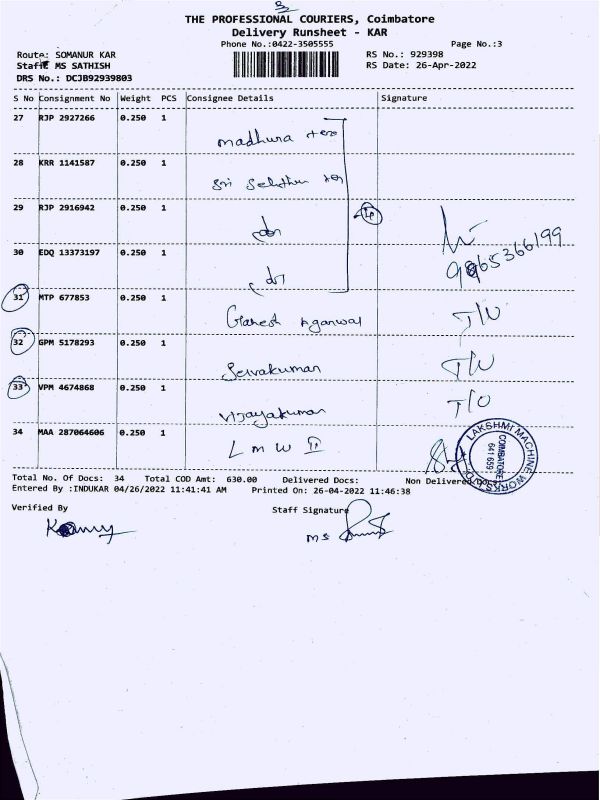 3
THE PROFESSIONAL COURIERS, Coimbatore
Delivery Runsheet - KAR
Phone No.:0422-3505555 Page No.:3
Route: SOMANUR KAR RS No.: 929398
Staff: MS SATHISH RS Date: 26-Apr-2022
DRS No.: DCJB92939803
S No Consignment No Weight PCS Consignee Details Signature
27 RJP 2927266 0.250 1 madhura
28 KRR 1141587 0.250 1 Sri
29 RJP 2916942 0.250 1
30 EDQ 13373197 0.250 1 9965366199
31 MTP 677853 0.250 1 Ganesh Aganwal
32 GPM 5178293 0.250 1 Selvakuman
33 VPM 4674868 0.250 1 Vijayakuman
34 MAA 287064606 0.250 1 L M W II
LAKSHMI MACHINE WORKS
COIMBATORE
641 659
Total No. Of Docs: 34 Total COD Amt: 630.00 Delivered Docs: Non Delivered Docs:
Entered By :INDUKAR 04/26/2022 11:41:41 AM Printed On: 26-04-2022 11:46:38
Verified By Staff Signature
MS